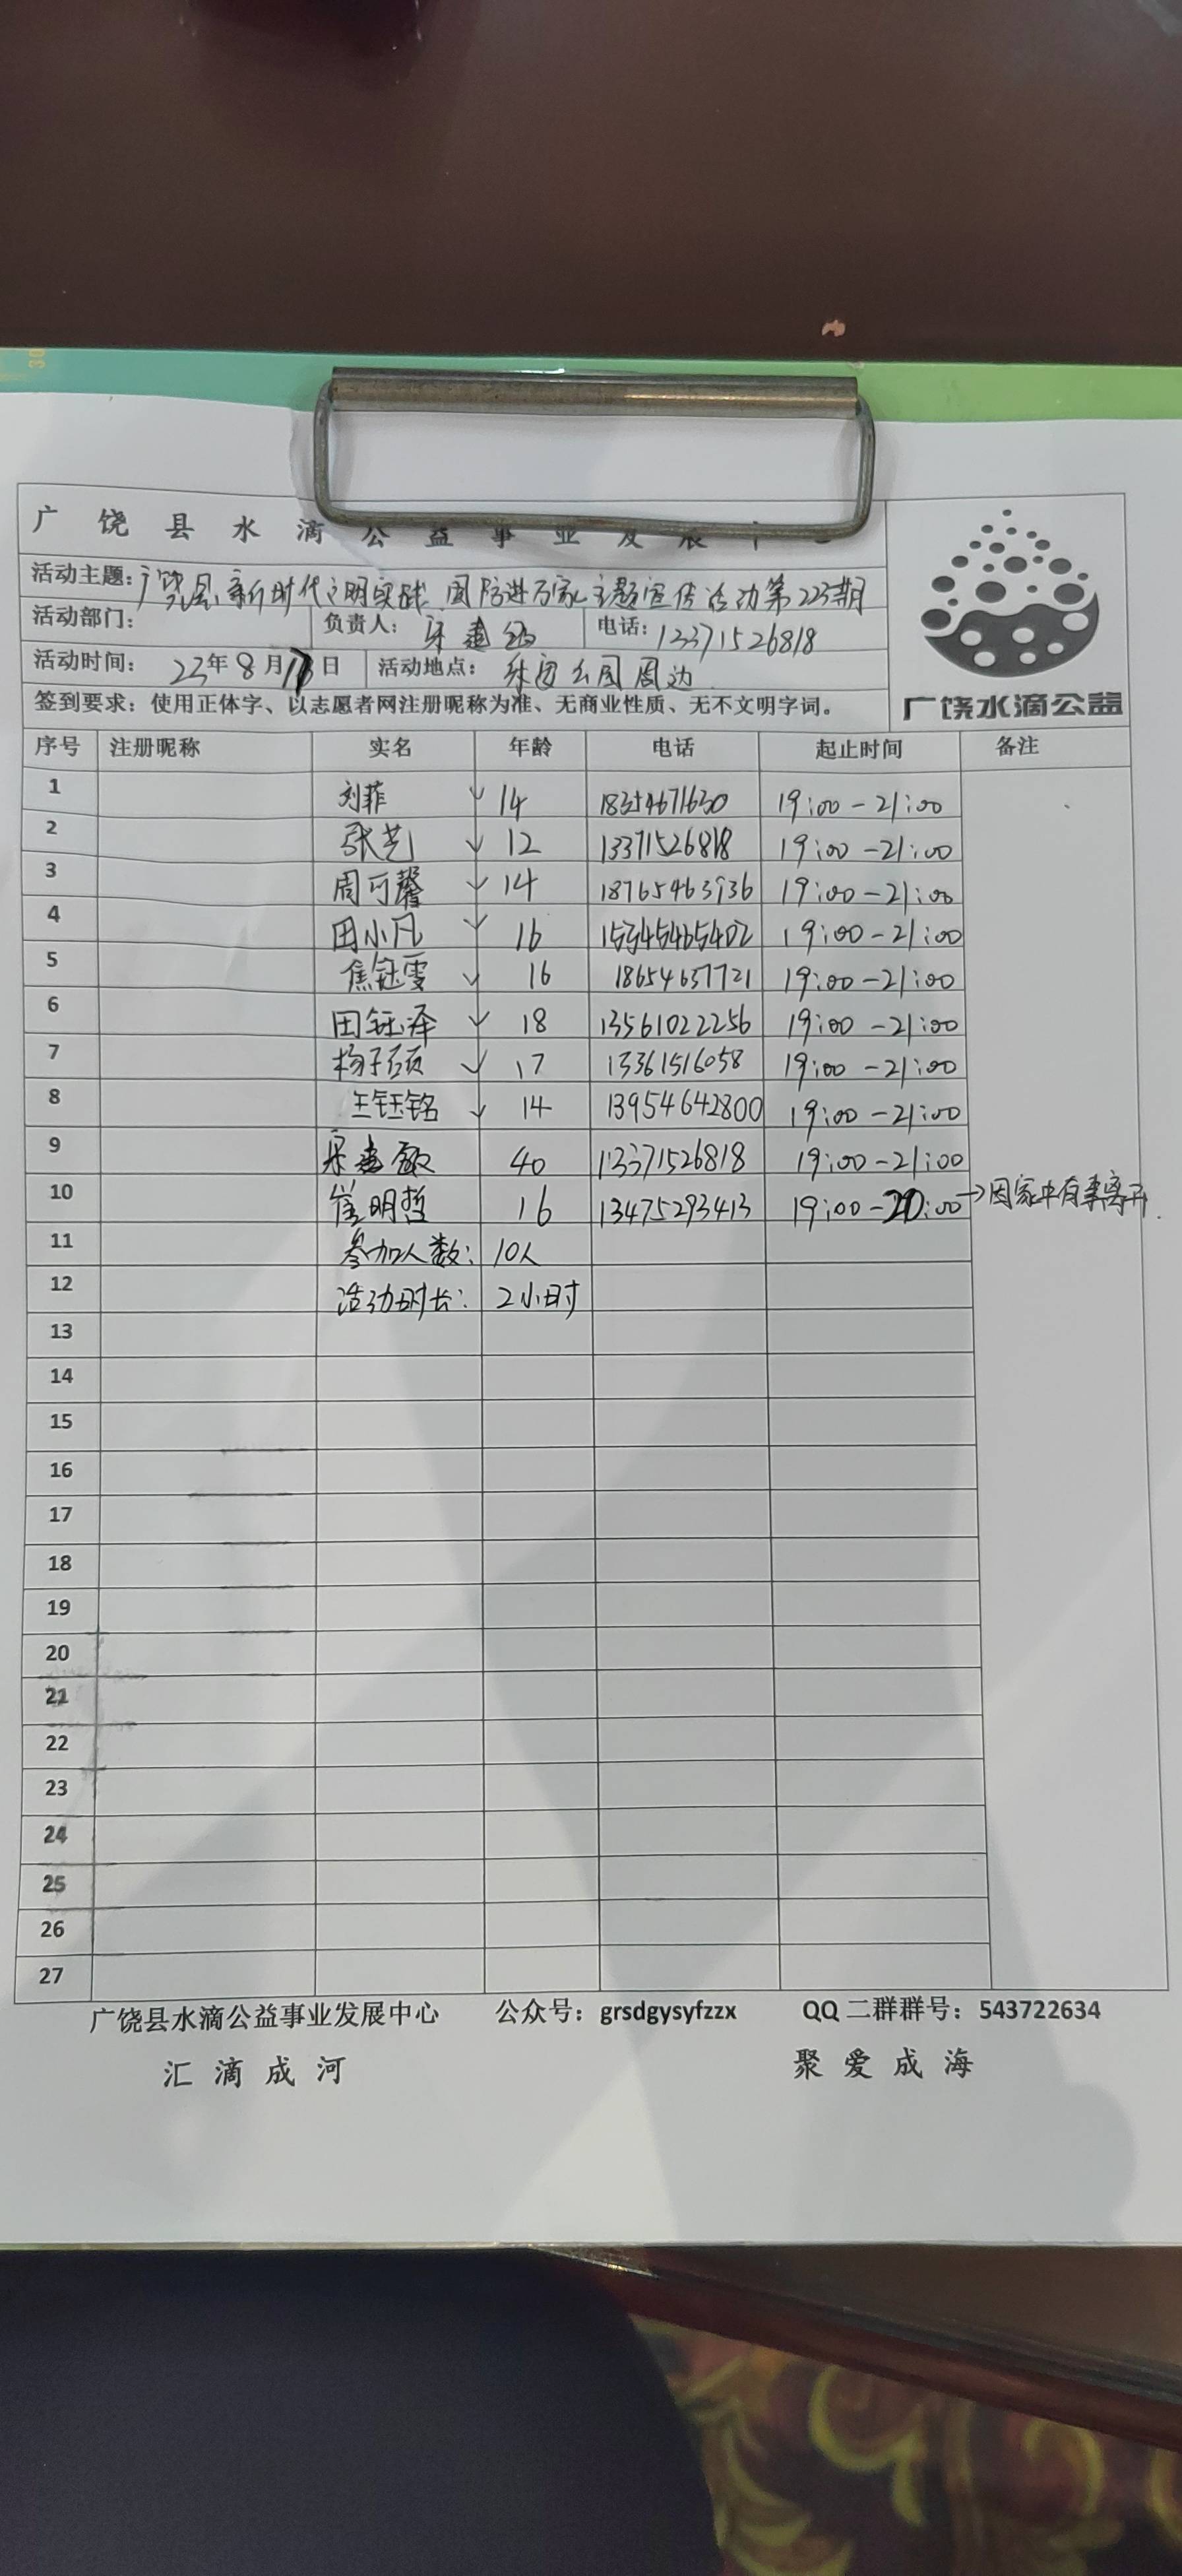 广饶县水滴公益事业发展中心
活动主题：广饶县新时代文明实践 国防进万家主题宣传活动第223期
活动部门： 负责人： 电话：13371526818
活动时间：23年8月 日 活动地点：乐安公园周边
签到要求：使用正体字、以志愿者网注册昵称为准、无商业性质、无不文明字词。
广饶水滴公益
序号 注册昵称 实名 年龄 电话 起止时间 备注
1 刘菲 ✓ 14 18354671630 19:00-21:00
2 张艺 ✓ 12 13371526818 19:00-21:00
3 周可馨 ✓ 14 18765463936 19:00-21:00
4 田小凡 ✓ 16 19:00-21:00
5 焦钰雯 ✓ 16 18654637721 19:00-21:00
6 田钰泽 ✓ 18 13561022256 19:00-21:00
7 杨子硕 ✓ 17 13361516058 19:00-21:00
8 王钰铭 ✓ 14 13954642800 19:00-21:00
9 40 13371526818 19:00-21:00
10 崔明哲 16 13475293413 19:00-20:00 →因家中有事离开.
11 参加人数： 10人
12 活动时长： 2小时
13
14
15
16
17
18
19
20
21
22
23
24
25
26
27
广饶县水滴公益事业发展中心 公众号：grsdgysyfzzx QQ二群群号：543722634
汇滴成河 聚爱成海